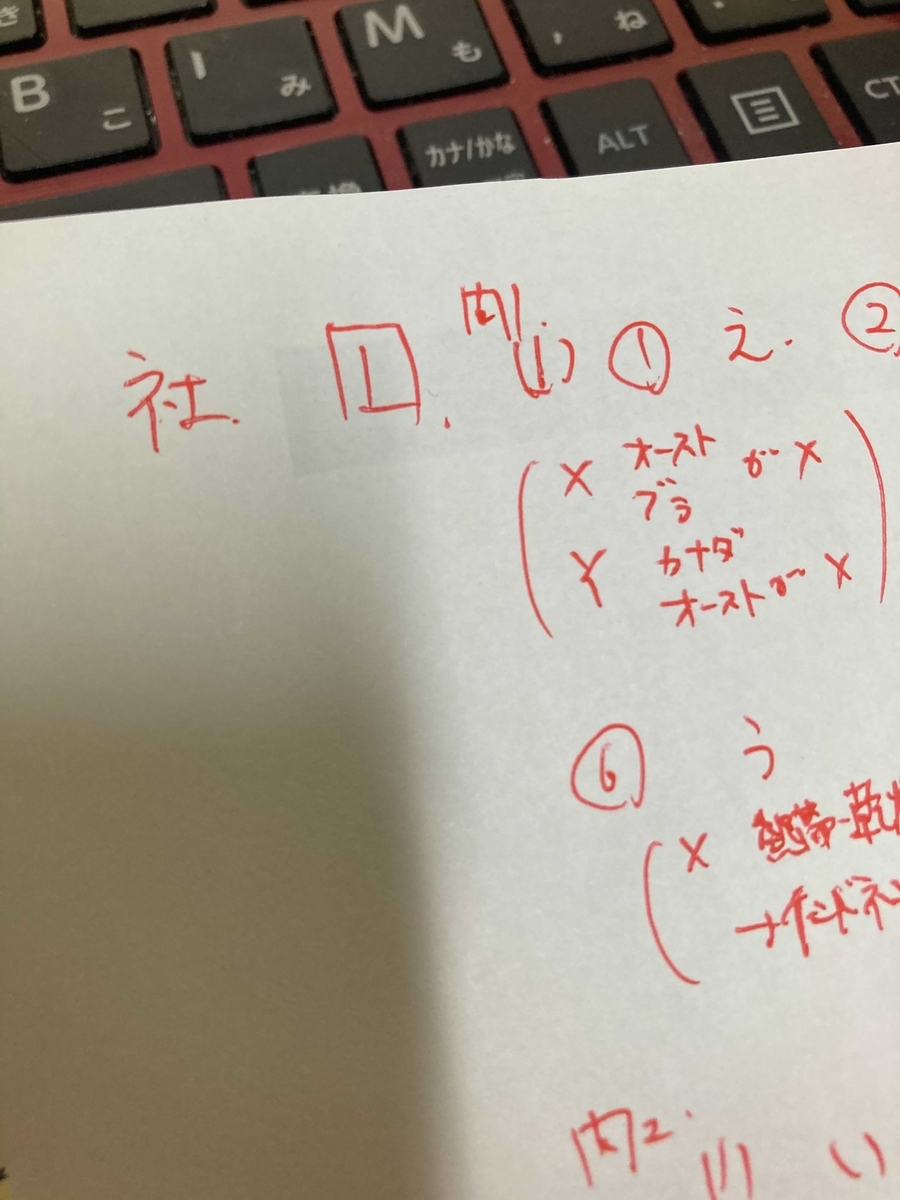 き
B こ
I み
M も
, ね
カナ/かな
ALT
CT
社. 1. 問1. (1) ① え. ②
X オースト
ブラ が X
Y カナダ
オーストが X
⑥ う
X 熱帯-乾
→インドネシ
問2. (1) い